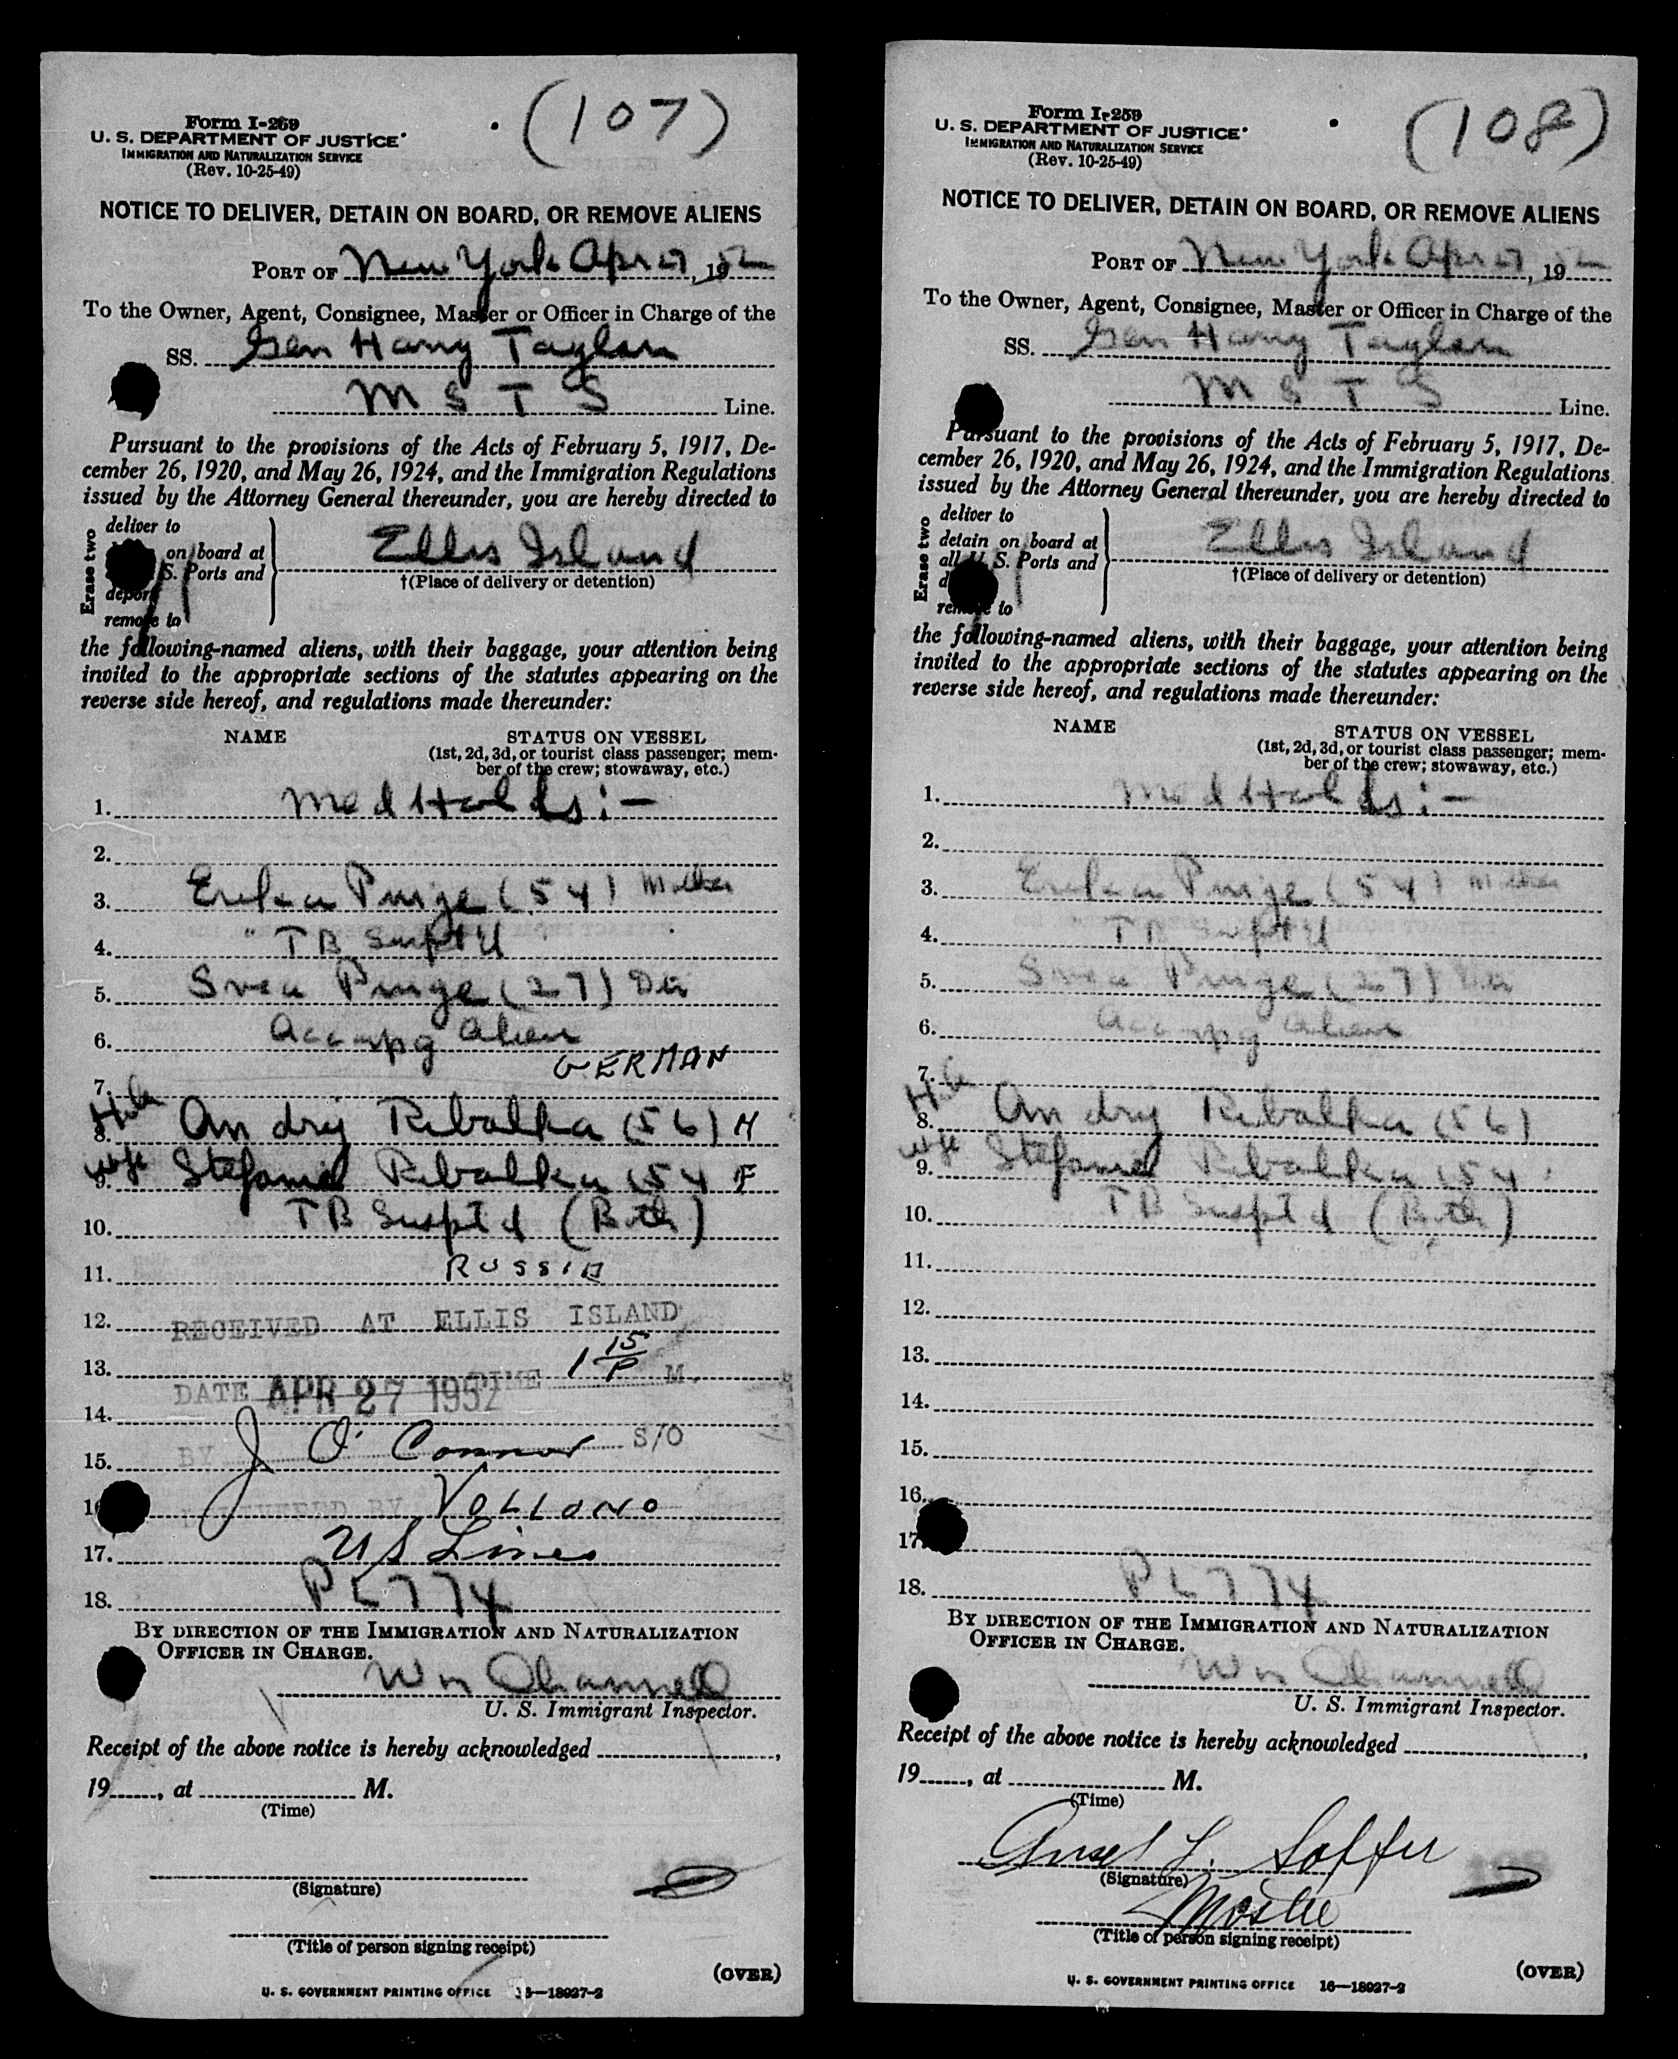 (107)
Form I-259
U. S. DEPARTMENT OF JUSTICE
IMMIGRATION AND NATURALIZATION SERVICE
(Rev. 10-25-49)
NOTICE TO DELIVER, DETAIN ON BOARD, OR REMOVE ALIENS
PORT OF New York Apr 27, 1952
To the Owner, Agent, Consignee, Master or Officer in Charge of the
SS. Gen Harry Taylor
M S T S Line.
Pursuant to the provisions of the Acts of February 5, 1917, De-
cember 26, 1920, and May 26, 1924, and the Immigration Regulations
issued by the Attorney General thereunder, you are hereby directed to
Erase two
deliver to
on board at
S. Ports and
deport
remove to
Ellis Island
†(Place of delivery or detention)
the following-named aliens, with their baggage, your attention being
invited to the appropriate sections of the statutes appearing on the
reverse side hereof, and regulations made thereunder:
NAME STATUS ON VESSEL
(1st, 2d, 3d, or tourist class passenger; mem-
ber of the crew; stowaway, etc.)
1. Med Holds :-
2.
3. Erika Pinge (54) Mother
4. " TB Suspt'd
5. Svea Pinge (27) Da
6. Accompg Alien
GERMAN
7.
8. Hub Andrij Ribalka (56) M
9. wife Stefania Ribalka (54 F
10. TB Suspt d (Both)
11. RUSSIA
12. RECEIVED AT ELLIS ISLAND
13. 1 15/P M.
DATE APR 27 1952 TIME
14.
15. BY J O'Connor S/O
16. DELIVERED BY VOLLONO
17. US Lines
18. PL 774
BY DIRECTION OF THE IMMIGRATION AND NATURALIZATION
OFFICER IN CHARGE.
Wm Channell
U. S. Immigrant Inspector.
Receipt of the above notice is hereby acknowledged ,
19 , at M.
(Time)
(Signature)
(Title of person signing receipt)
(OVER)
U. S. GOVERNMENT PRINTING OFFICE 16—18937-2
(108)
Form I-259
U. S. DEPARTMENT OF JUSTICE
IMMIGRATION AND NATURALIZATION SERVICE
(Rev. 10-25-49)
NOTICE TO DELIVER, DETAIN ON BOARD, OR REMOVE ALIENS
PORT OF New York Apr 27, 1952
To the Owner, Agent, Consignee, Master or Officer in Charge of the
SS. Gen Harry Taylor
M S T S Line.
Pursuant to the provisions of the Acts of February 5, 1917, De-
cember 26, 1920, and May 26, 1924, and the Immigration Regulations
issued by the Attorney General thereunder, you are hereby directed to
Erase two
deliver to
detain on board at
all U. S. Ports and
remove to
Ellis Island
†(Place of delivery or detention)
the following-named aliens, with their baggage, your attention being
invited to the appropriate sections of the statutes appearing on the
reverse side hereof, and regulations made thereunder:
NAME STATUS ON VESSEL
(1st, 2d, 3d, or tourist class passenger; mem-
ber of the crew; stowaway, etc.)
1. Med Holds :-
2.
3. Erika Pinge (54) Mother
4. " TB Suspt'd
5. Svea Pinge (27) Da
6. Accompg Alien
7.
8. Hub Andrij Ribalka (56)
9. wife Stefania Ribalka (54
10. TB Suspt d (Both)
11.
12.
13.
14.
15.
16.
17.
18. PL 774
BY DIRECTION OF THE IMMIGRATION AND NATURALIZATION
OFFICER IN CHARGE.
Wm Channell
U. S. Immigrant Inspector.
Receipt of the above notice is hereby acknowledged ,
19 , at M.
(Time)
Ansel L. Soffer
(Signature)
(Title of person signing receipt)
(OVER)
U. S. GOVERNMENT PRINTING OFFICE 16—18937-2